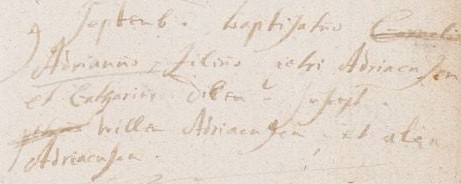 9 Septemb. baptisatus Cornelis
Adrianus, filius Petri Adriaensen
et Catharina Dilen susept.
Willem Adriaensen et alen
Adriaensen.